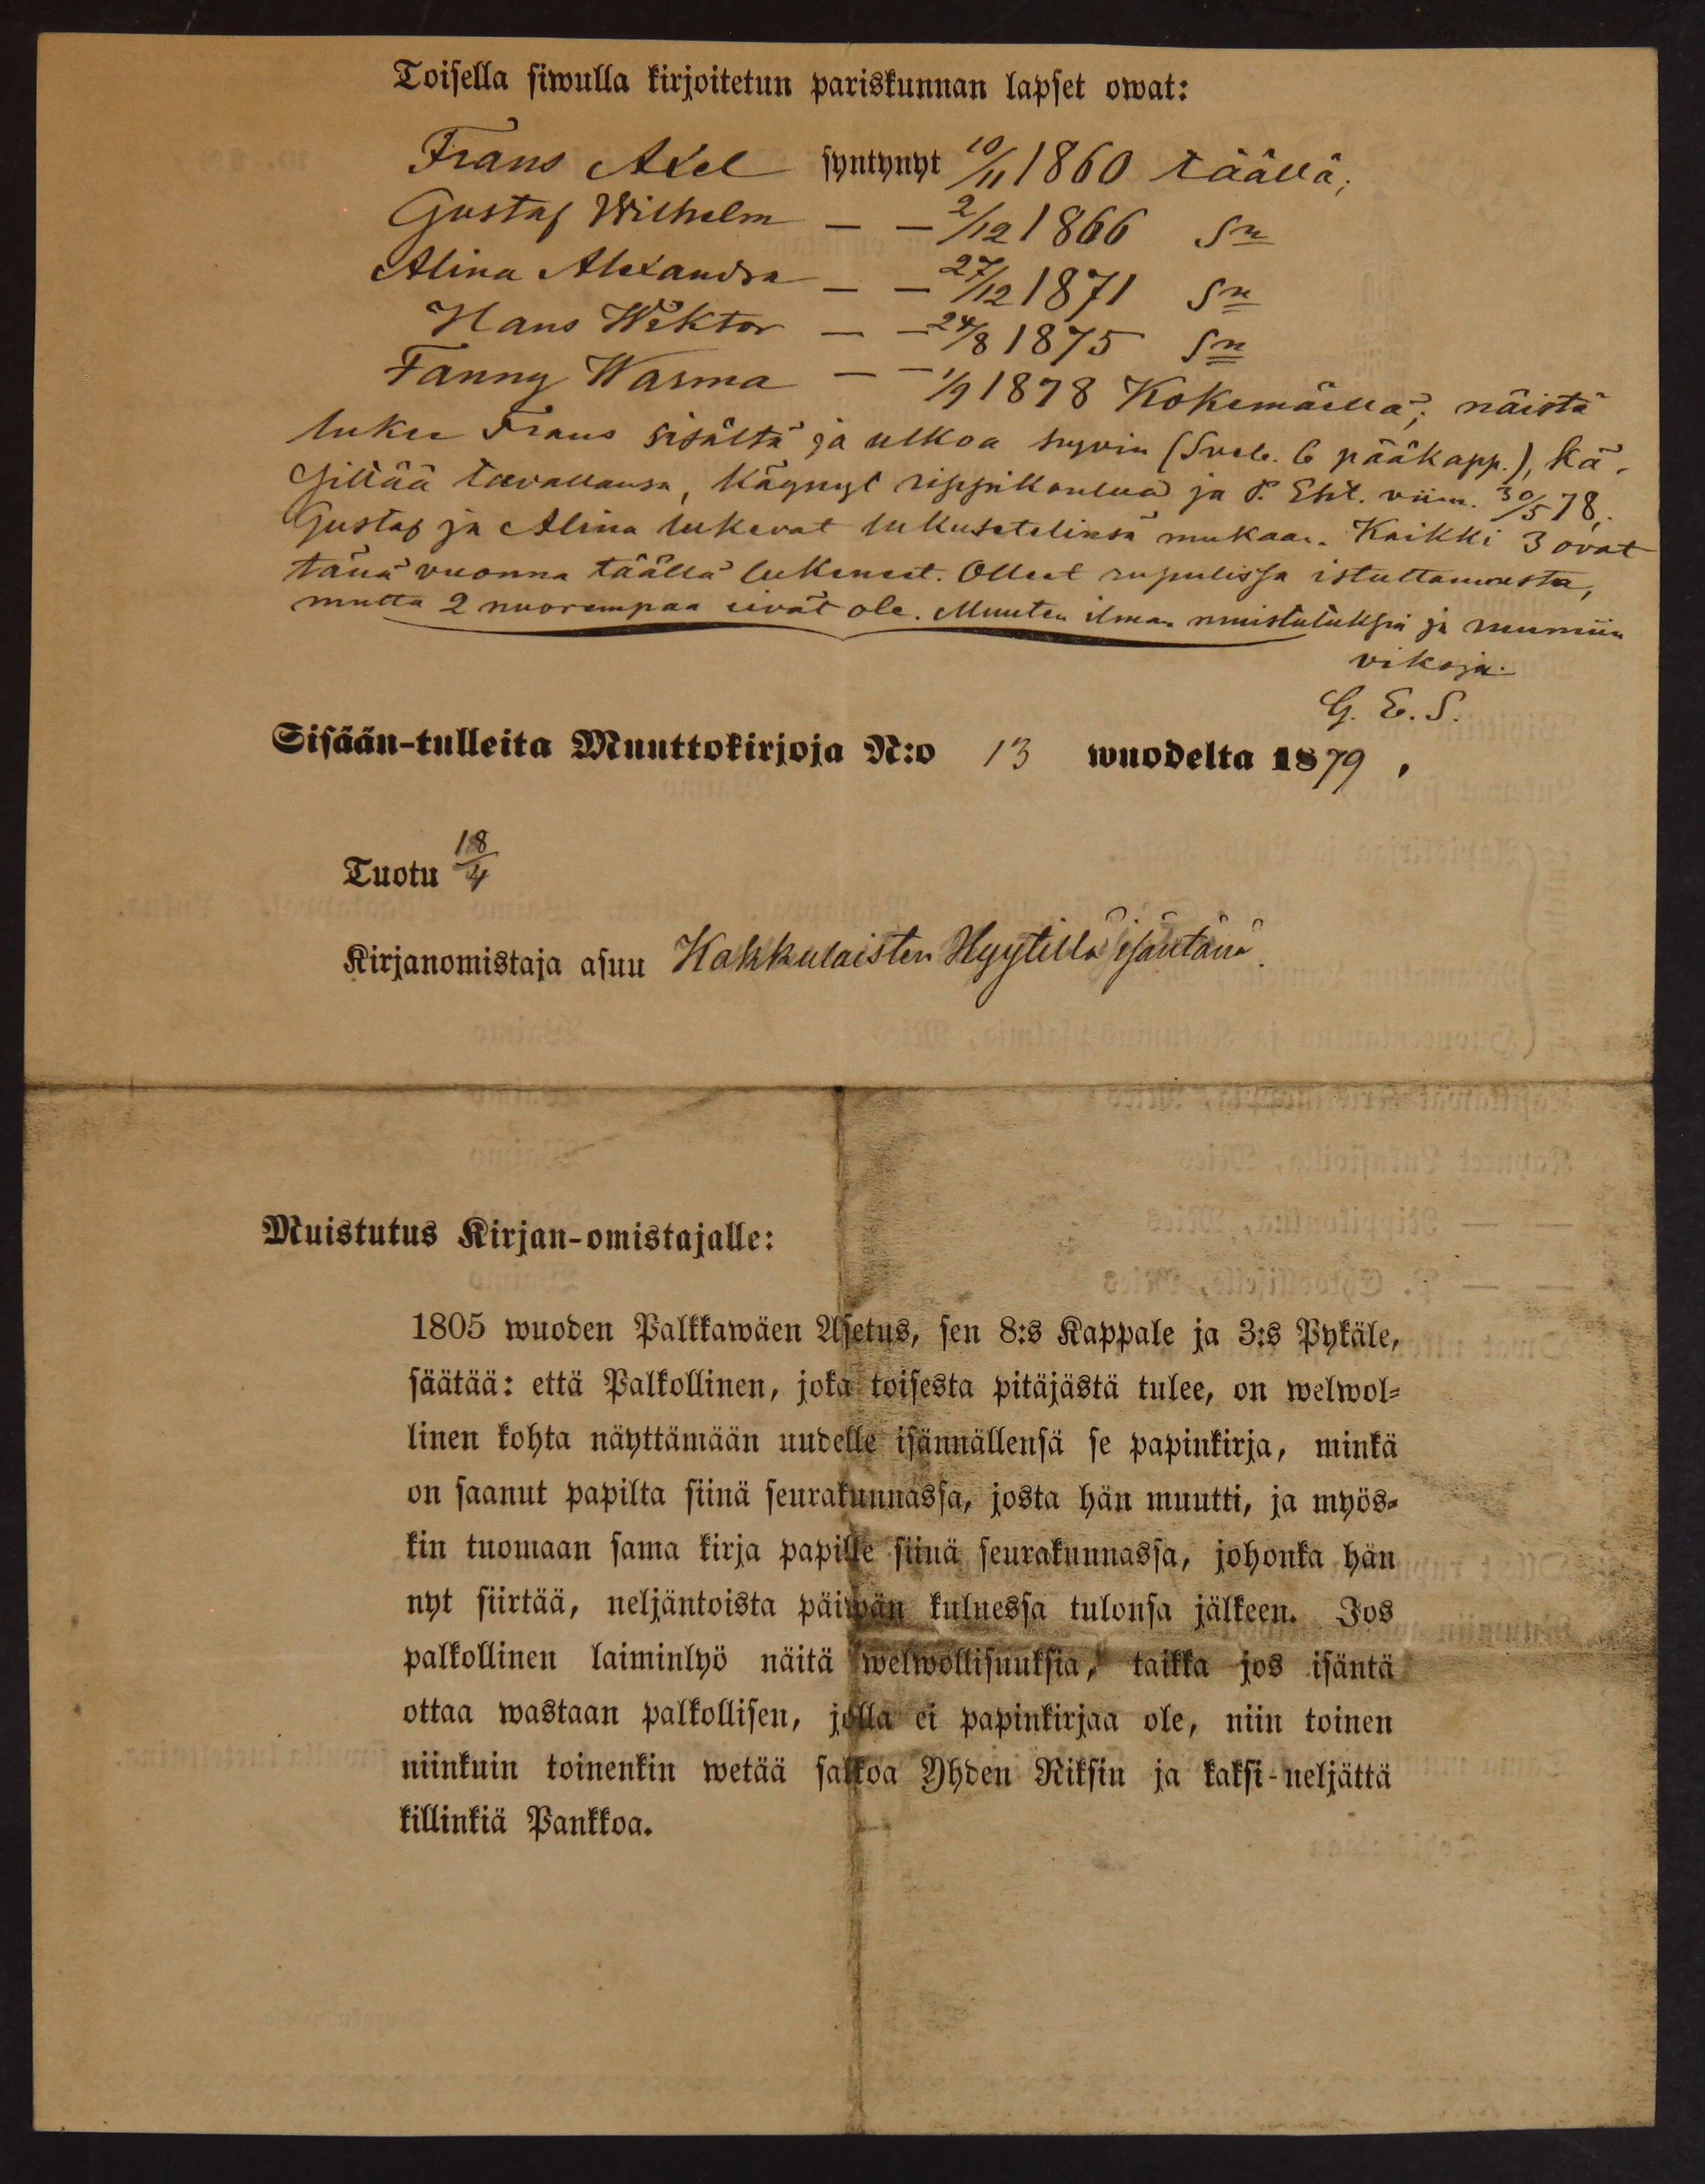 Toisella siwulla kirjoitetun pariskunnan lapset owat:
Frans Axel syntynyt 10/11 1860 täällä;
Gustaf Wilhelm — — 2/12 1866 Sn
Alina Alexandra — — 27/12 1871 Sn
Hans Wiktor — — 24/8 1875 Sn
Fanny Warma — — 1/9 1878 Kokemäellä; näistä
lukee Frans sisältä ja ulkoa hyvin (Sveb. 6 pääkapp.), kä-
sittää tavallansa, käynyt rippikoulua ja P. Eht. viim. 30/5 78;
Gustaf ja Alina lukevat lukusetelinsä mukaan. Kaikki 3 ovat
tänä vuonna täällä lukeneet. Olleet rupulissa istuttamasta,
mutta 2 nuorempaa eivät ole. Muuten ilman muistutuksia ja ruumiin
vikoja.
G. E. S.
Sisään-tulleita Muuttokirjoja N:o 13 wuodelta 1879,
Tuotu 18/4
Kirjanomistaja asuu Kakkulaisten Hyytillä isäntänä.
Muistutus Kirjan-omistajalle:
1805 wuoden Palkkawäen Asetus, sen 8:s Kappale ja 3:s Pykäle,
säätää: että Palkollinen, joka toisesta pitäjästä tulee, on welwol-
linen kohta näyttämään uudelle isännällensä se papinkirja, minkä
on saanut papilta siinä seurakunnassa, josta hän muutti, ja myös-
kin tuomaan sama kirja papille siinä seurakunnassa, johonka hän
nyt siirtää, neljäntoista päiwän kuluessa tulonsa jälkeen. Jos
palkollinen laiminlyö näitä welwollisuuksia, taikka jos isäntä
ottaa wastaan palkollisen, jolla ei papinkirjaa ole, niin toinen
niinkuin toinenkin wetää sakkoa Yhden Riksin ja kaksi-neljättä
killinkiä Pankkoa.